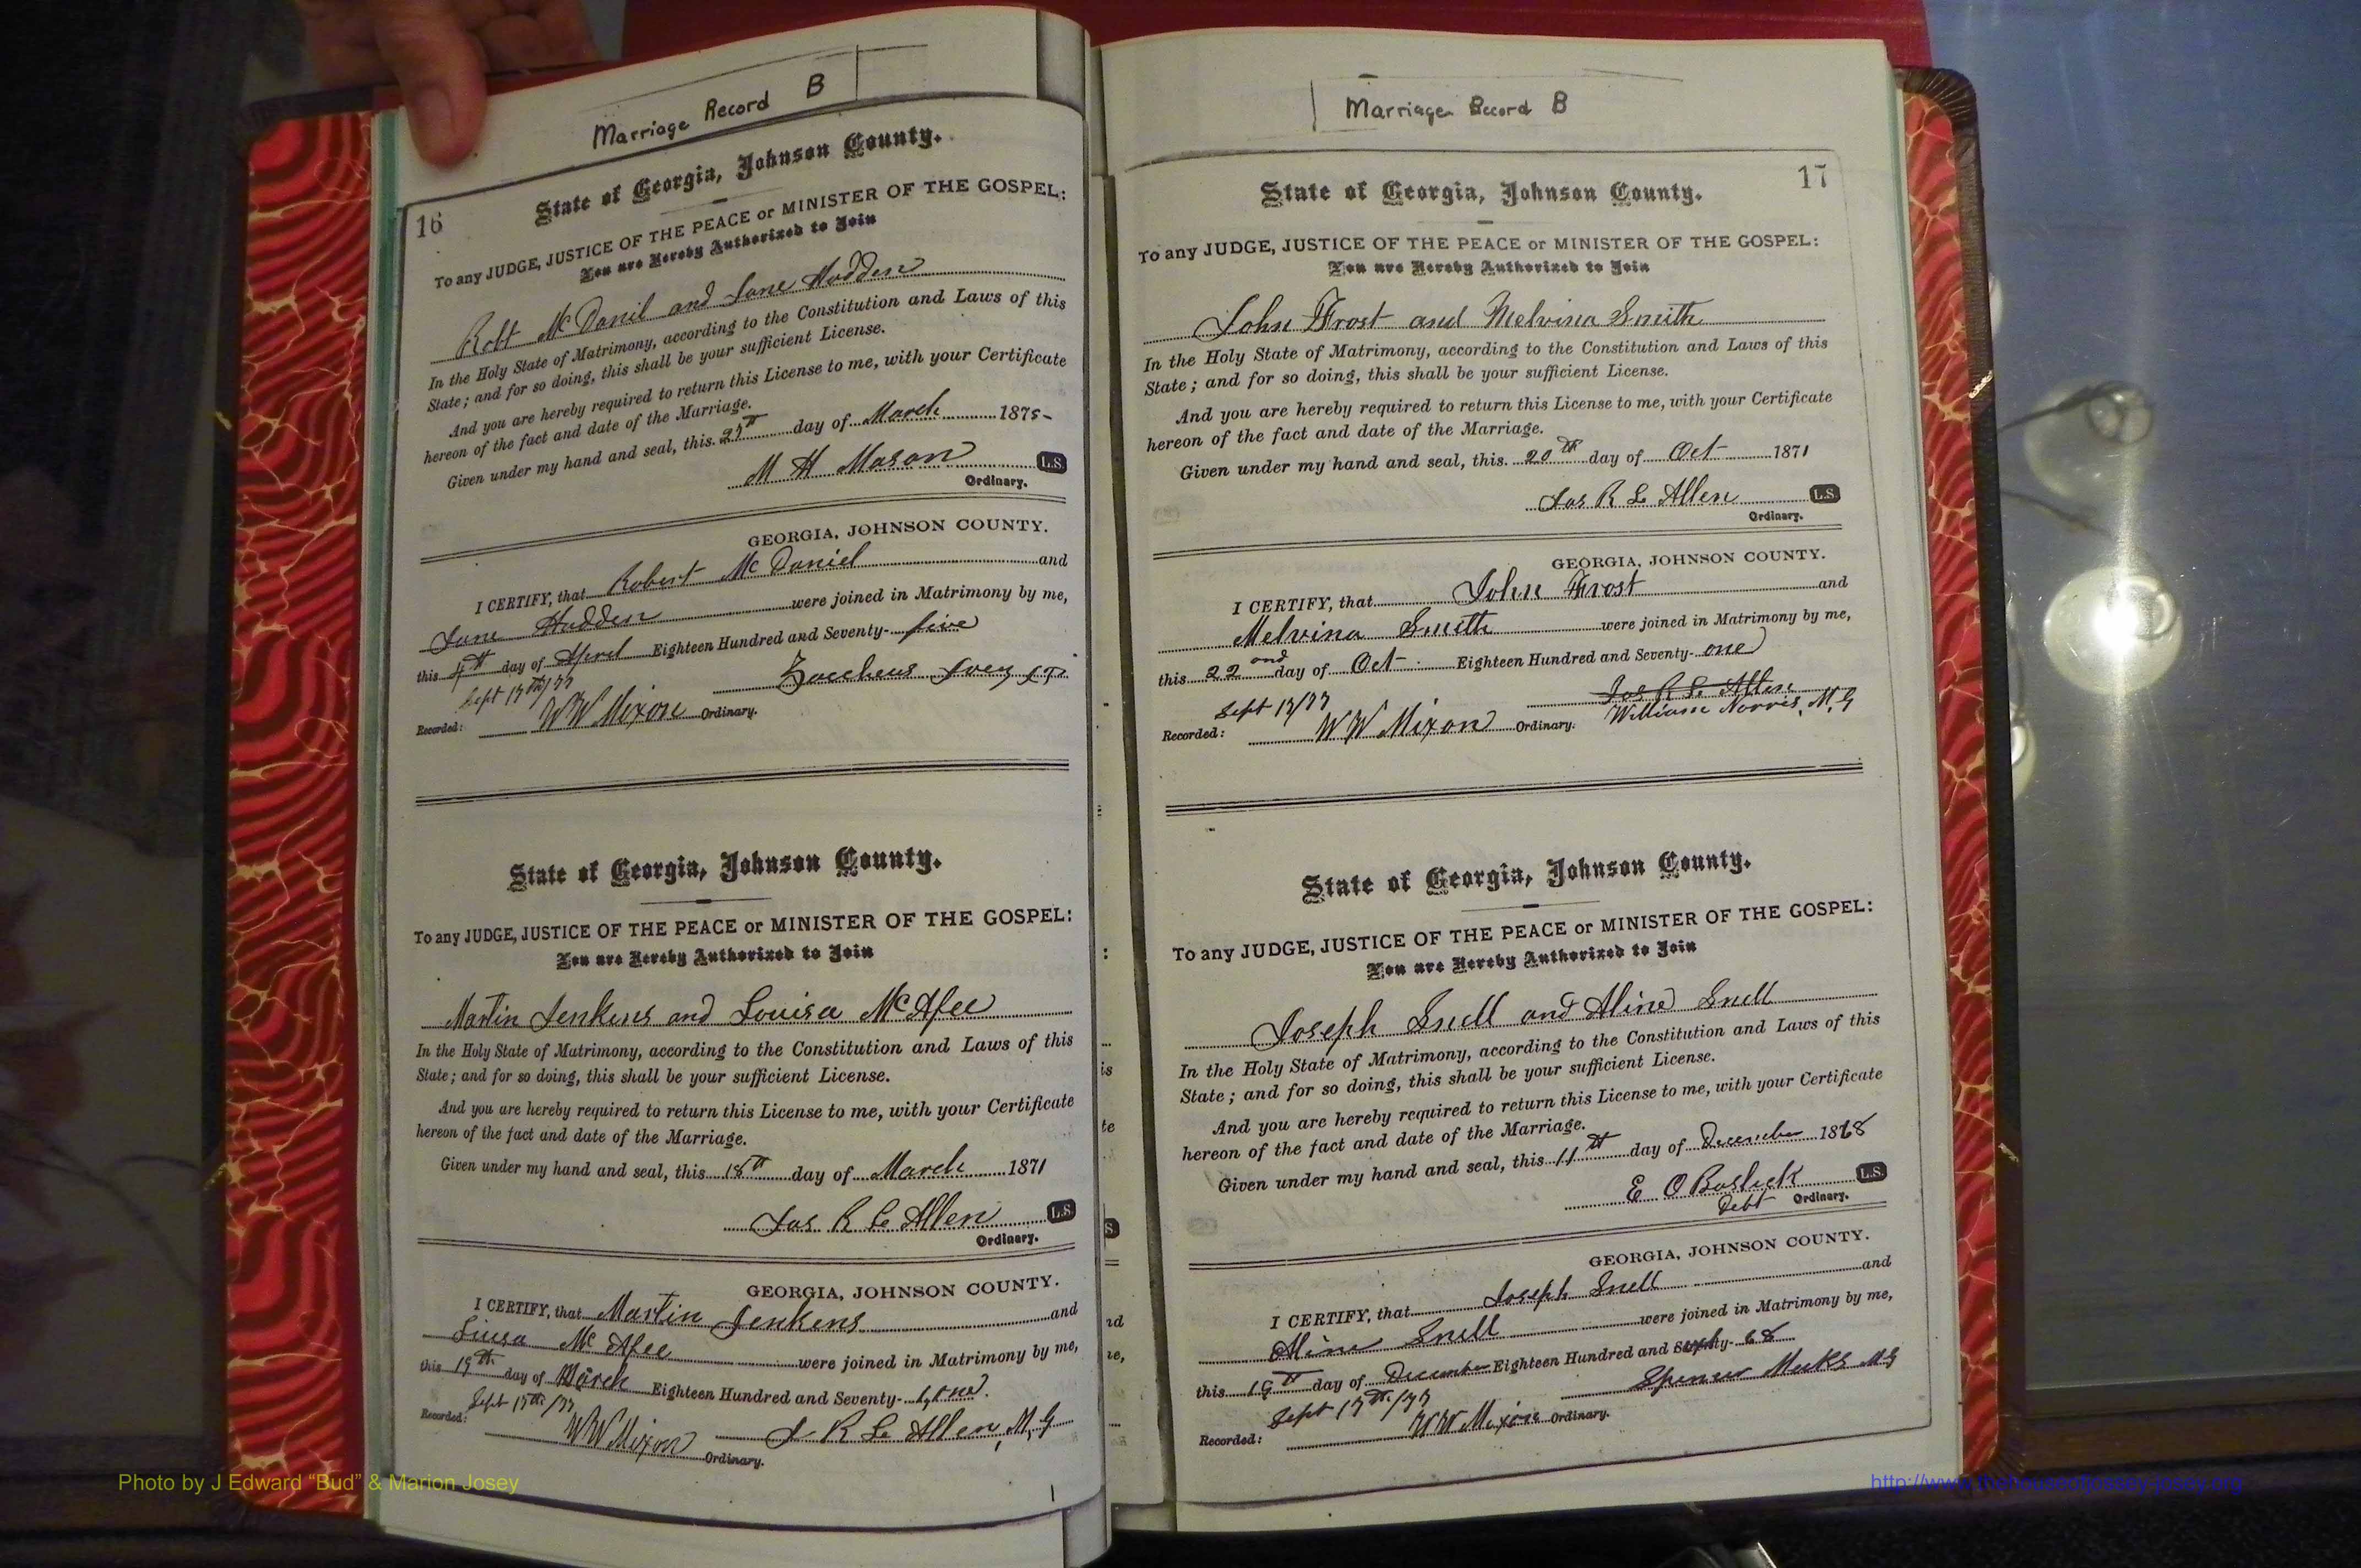 Marriage Record B
16
State of Georgia, Johnson County.
To any JUDGE, JUSTICE OF THE PEACE or MINISTER OF THE GOSPEL:
You are Hereby Authorized to Join
Robt McDanil and Jane Hodden
In the Holy State of Matrimony, according to the Constitution and Laws of this
State; and for so doing, this shall be your sufficient License.
And you are hereby required to return this License to me, with your Certificate
hereon of the fact and date of the Marriage.
Given under my hand and seal, this 25th day of March 1875
M H Mason L.S.
Ordinary.
GEORGIA, JOHNSON COUNTY.
I CERTIFY, that Robert McDaniel and
Jane Hodden were joined in Matrimony by me,
this 4th day of April Eighteen Hundred and Seventy-five
Sept 17th/77
Recorded: W W Mixon Ordinary.
State of Georgia, Johnson County.
To any JUDGE, JUSTICE OF THE PEACE or MINISTER OF THE GOSPEL:
You are Hereby Authorized to Join
Martin Jenkins and Louisa McAfee
In the Holy State of Matrimony, according to the Constitution and Laws of this
State; and for so doing, this shall be your sufficient License.
And you are hereby required to return this License to me, with your Certificate
hereon of the fact and date of the Marriage.
Given under my hand and seal, this 18th day of March 1871
Jas R L Allen L.S.
Ordinary.
GEORGIA, JOHNSON COUNTY.
I CERTIFY, that Martin Jenkens and
McAfee were joined in Matrimony by me,
this 19th day of March Eighteen Hundred and Seventy-
J R L Allen, M.G
Recorded: W W Mixon Ordinary.
Marriage Record B
17
State of Georgia, Johnson County.
To any JUDGE, JUSTICE OF THE PEACE or MINISTER OF THE GOSPEL:
You are Hereby Authorized to Join
John Frost and Melvina Smith
In the Holy State of Matrimony, according to the Constitution and Laws of this
State; and for so doing, this shall be your sufficient License.
And you are hereby required to return this License to me, with your Certificate
hereon of the fact and date of the Marriage.
Given under my hand and seal, this 20th day of Oct 1871
Jas R L Allen L.S.
Ordinary.
GEORGIA, JOHNSON COUNTY.
I CERTIFY, that John Frost and
Melvina Smith were joined in Matrimony by me,
this 22nd day of Oct Eighteen Hundred and Seventy-one
Jas R L Allen
Sept 17/77 William Norris, M.G
Recorded: W W Mixon Ordinary.
State of Georgia, Johnson County.
To any JUDGE, JUSTICE OF THE PEACE or MINISTER OF THE GOSPEL:
You are Hereby Authorized to Join
Joseph Snell and Aline Snell
In the Holy State of Matrimony, according to the Constitution and Laws of this
State; and for so doing, this shall be your sufficient License.
And you are hereby required to return this License to me, with your Certificate
hereon of the fact and date of the Marriage.
Given under my hand and seal, this 11th day of December 1868
E O Bostick L.S.
Ordinary.
GEORGIA, JOHNSON COUNTY.
I CERTIFY, that Joseph Snell and
Aline Snell were joined in Matrimony by me,
this day of December Eighteen Hundred and 68
Spencer Meeks MG
Sept 17th/77
Recorded: W W Mixon Ordinary.
Photo by J Edward “Bud” & Marion Josey
http://www.thehouseofjossey-josey.org